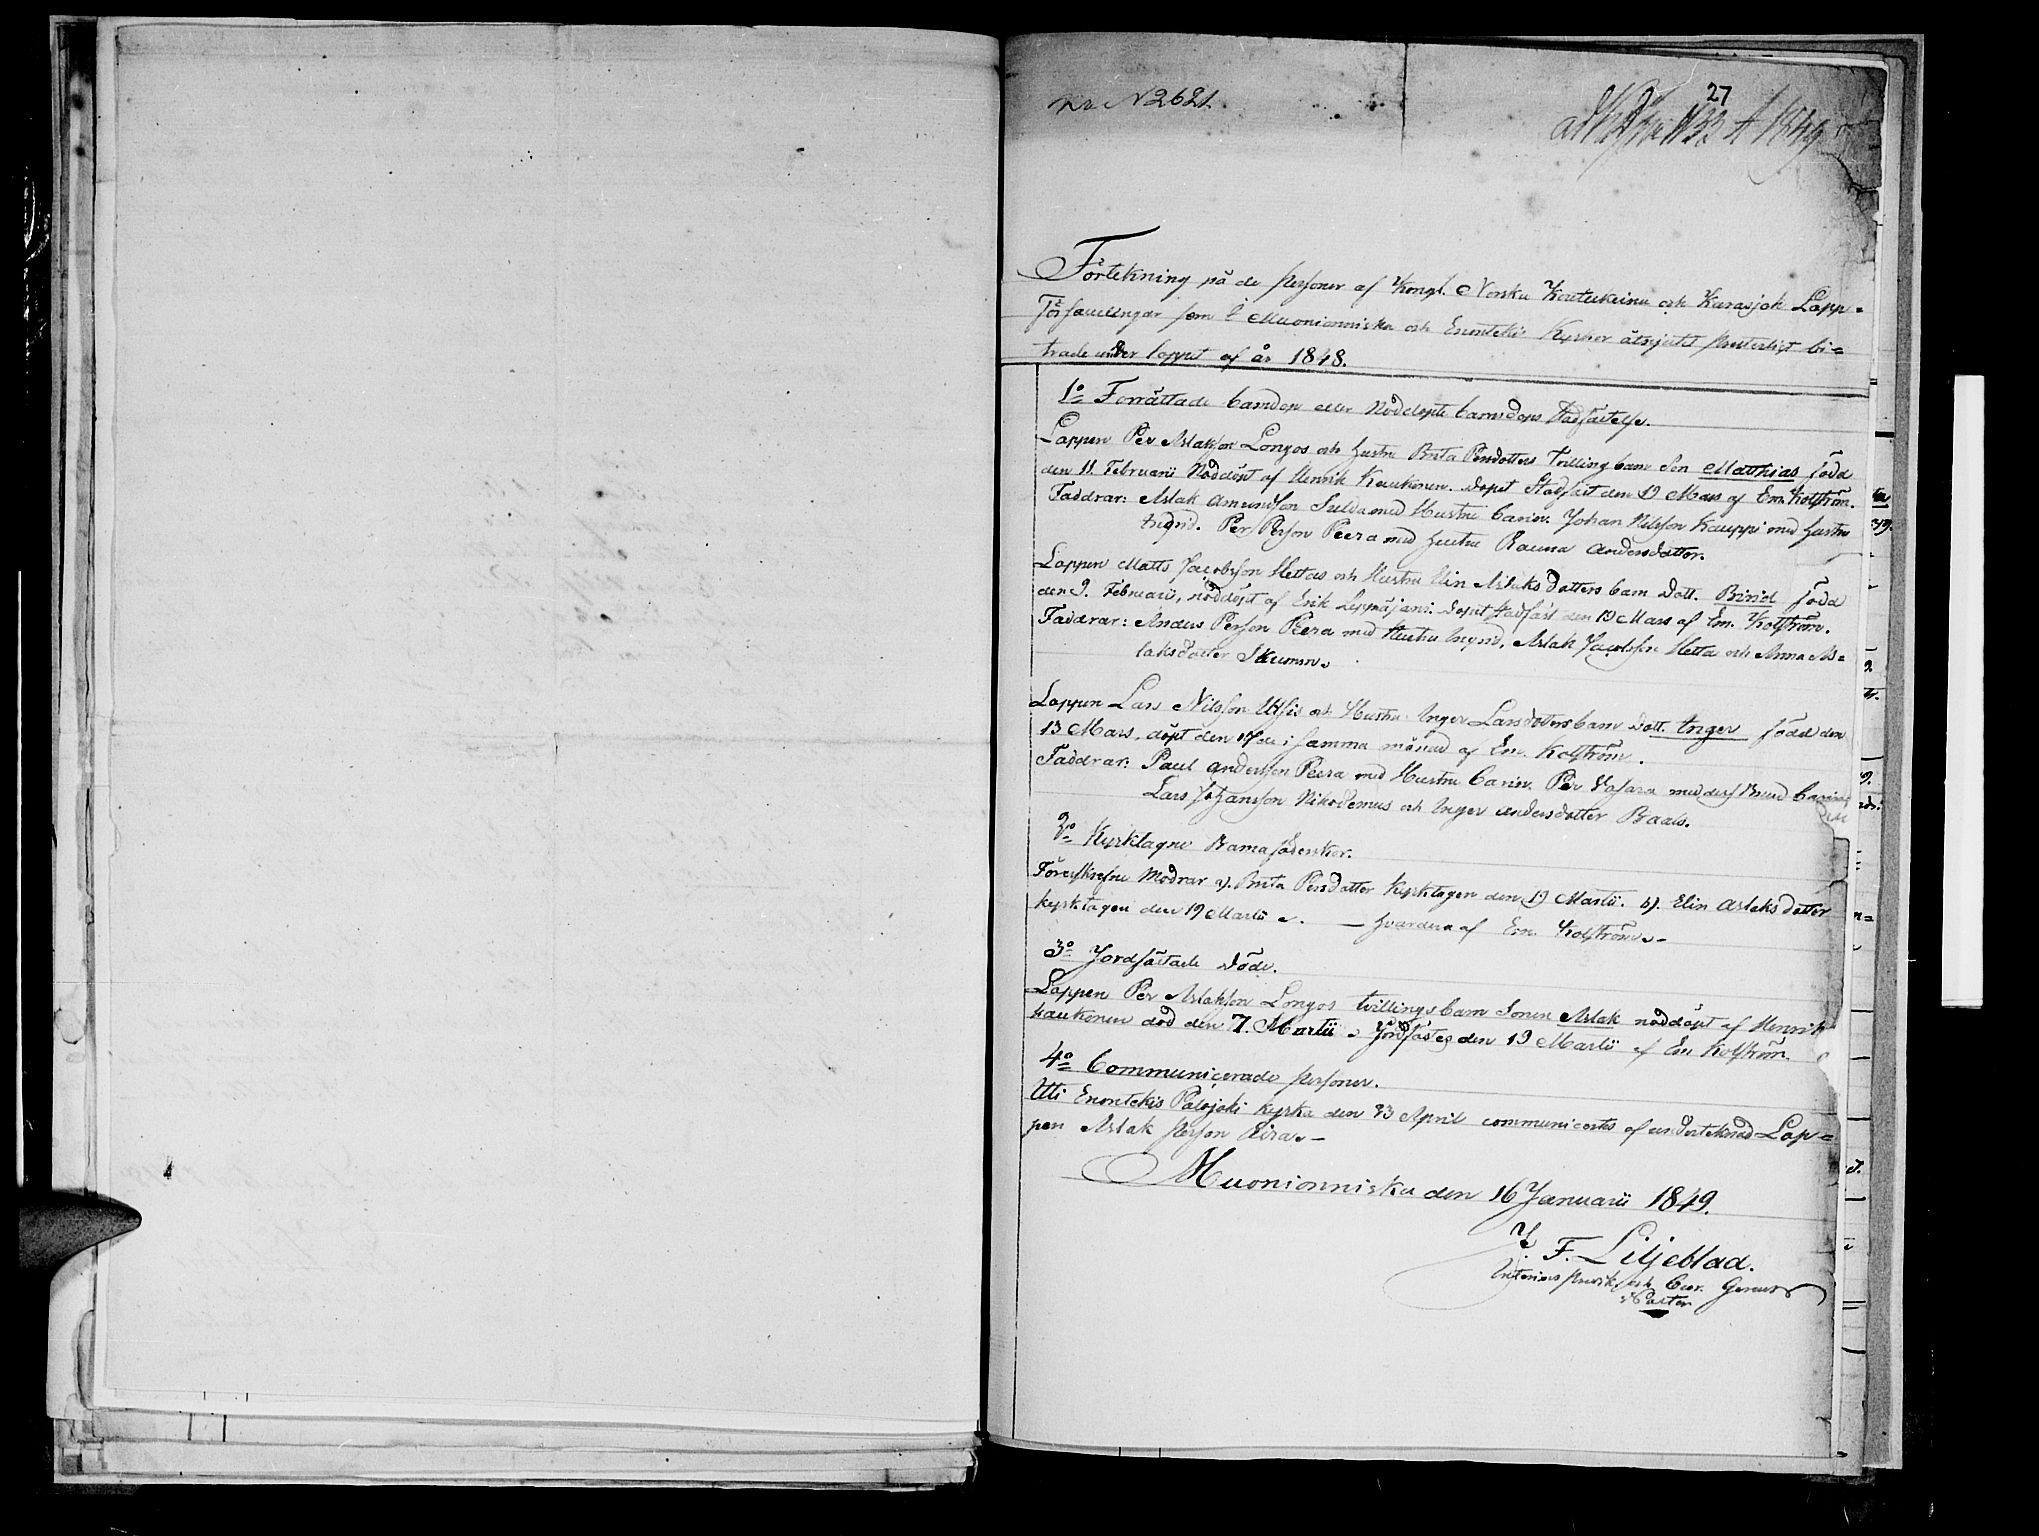 No 2621.
27
1849
Förtekning på de Personer af Kongl. Norska Koutukeinu och Karasjok Lapp=
församlingar som i Muonionniska och Enontekis Kyrkor åtnjutit Presterligt bi=
träde under loppet af år 1848.
1o Förrättade barndop eller Nöddopte barns dops stadfästelse.
Lappen Per Aslaksson Longos och hustru Brita Persdotters Tvilling barn Son Matthias född
den 11. Februarii Nöddöpt af Henrik Kaukonen. dopet Stadfäst den 19 Mars af Em. Kolström.
Faddrar: Aslak Amundsson Sulda med Hustru Carin. Johan Nilsson Kauppi med hustru
Ingrid. Per Persson Peera med hustru Rauna Andersdotter.
Lappen Matts Jacobsson Hettas och Hustru Elin Aslaks dotters barn Dott. Birrid född
den 9. Februarii, nöddöpt af Erik Leppäjärvi. Dopet stadfäst den 19 Mars af Em. Kolström.
Faddrar: Anders Persson Peera med Hustru Ingrid, Aslak Jacobsson Hetta och Anna As=
laksdotter Skumm.
Lappen Lars Nilsson Utsi och Hustru Inger Larsdotters barn Dott. Inger född den
13 Mars, döpt den 19de i samma månad af Em. Kolström.
Faddrar: Paul Andersson Peera med Hustru Carin. Per Vasara med dess Brud Carin
Lars Johansson Nikodemus och Inger Andersdotter Baals.
2o Kyrktagne Barnaföderskor.
Föreskrefne Mödrar a). Brita Persdotter Kyrktagen den 19 Martii. b). Elin Aslaksdotter
kyrktagen den 19 Martii. — hvardera af Em. Kolström.
3o Jordfästade Döde.
Lappen Per Aslaksson Longos tvillingsbarn Sonen Aslak nöddöpt af Henrik
Kaukonen död den 7. Martii Jordfästes den 19 Martii af Em Kolström.
4o Communicerade Personer.
Uti Enontekis Palojoki kyrka den 23 April communicertes af undertecknad Lap=
pen Aslak Persson
Muonionniska den 16 Januarii 1849.
F. Liljeblad.
och Cur. Gerens
Pastor